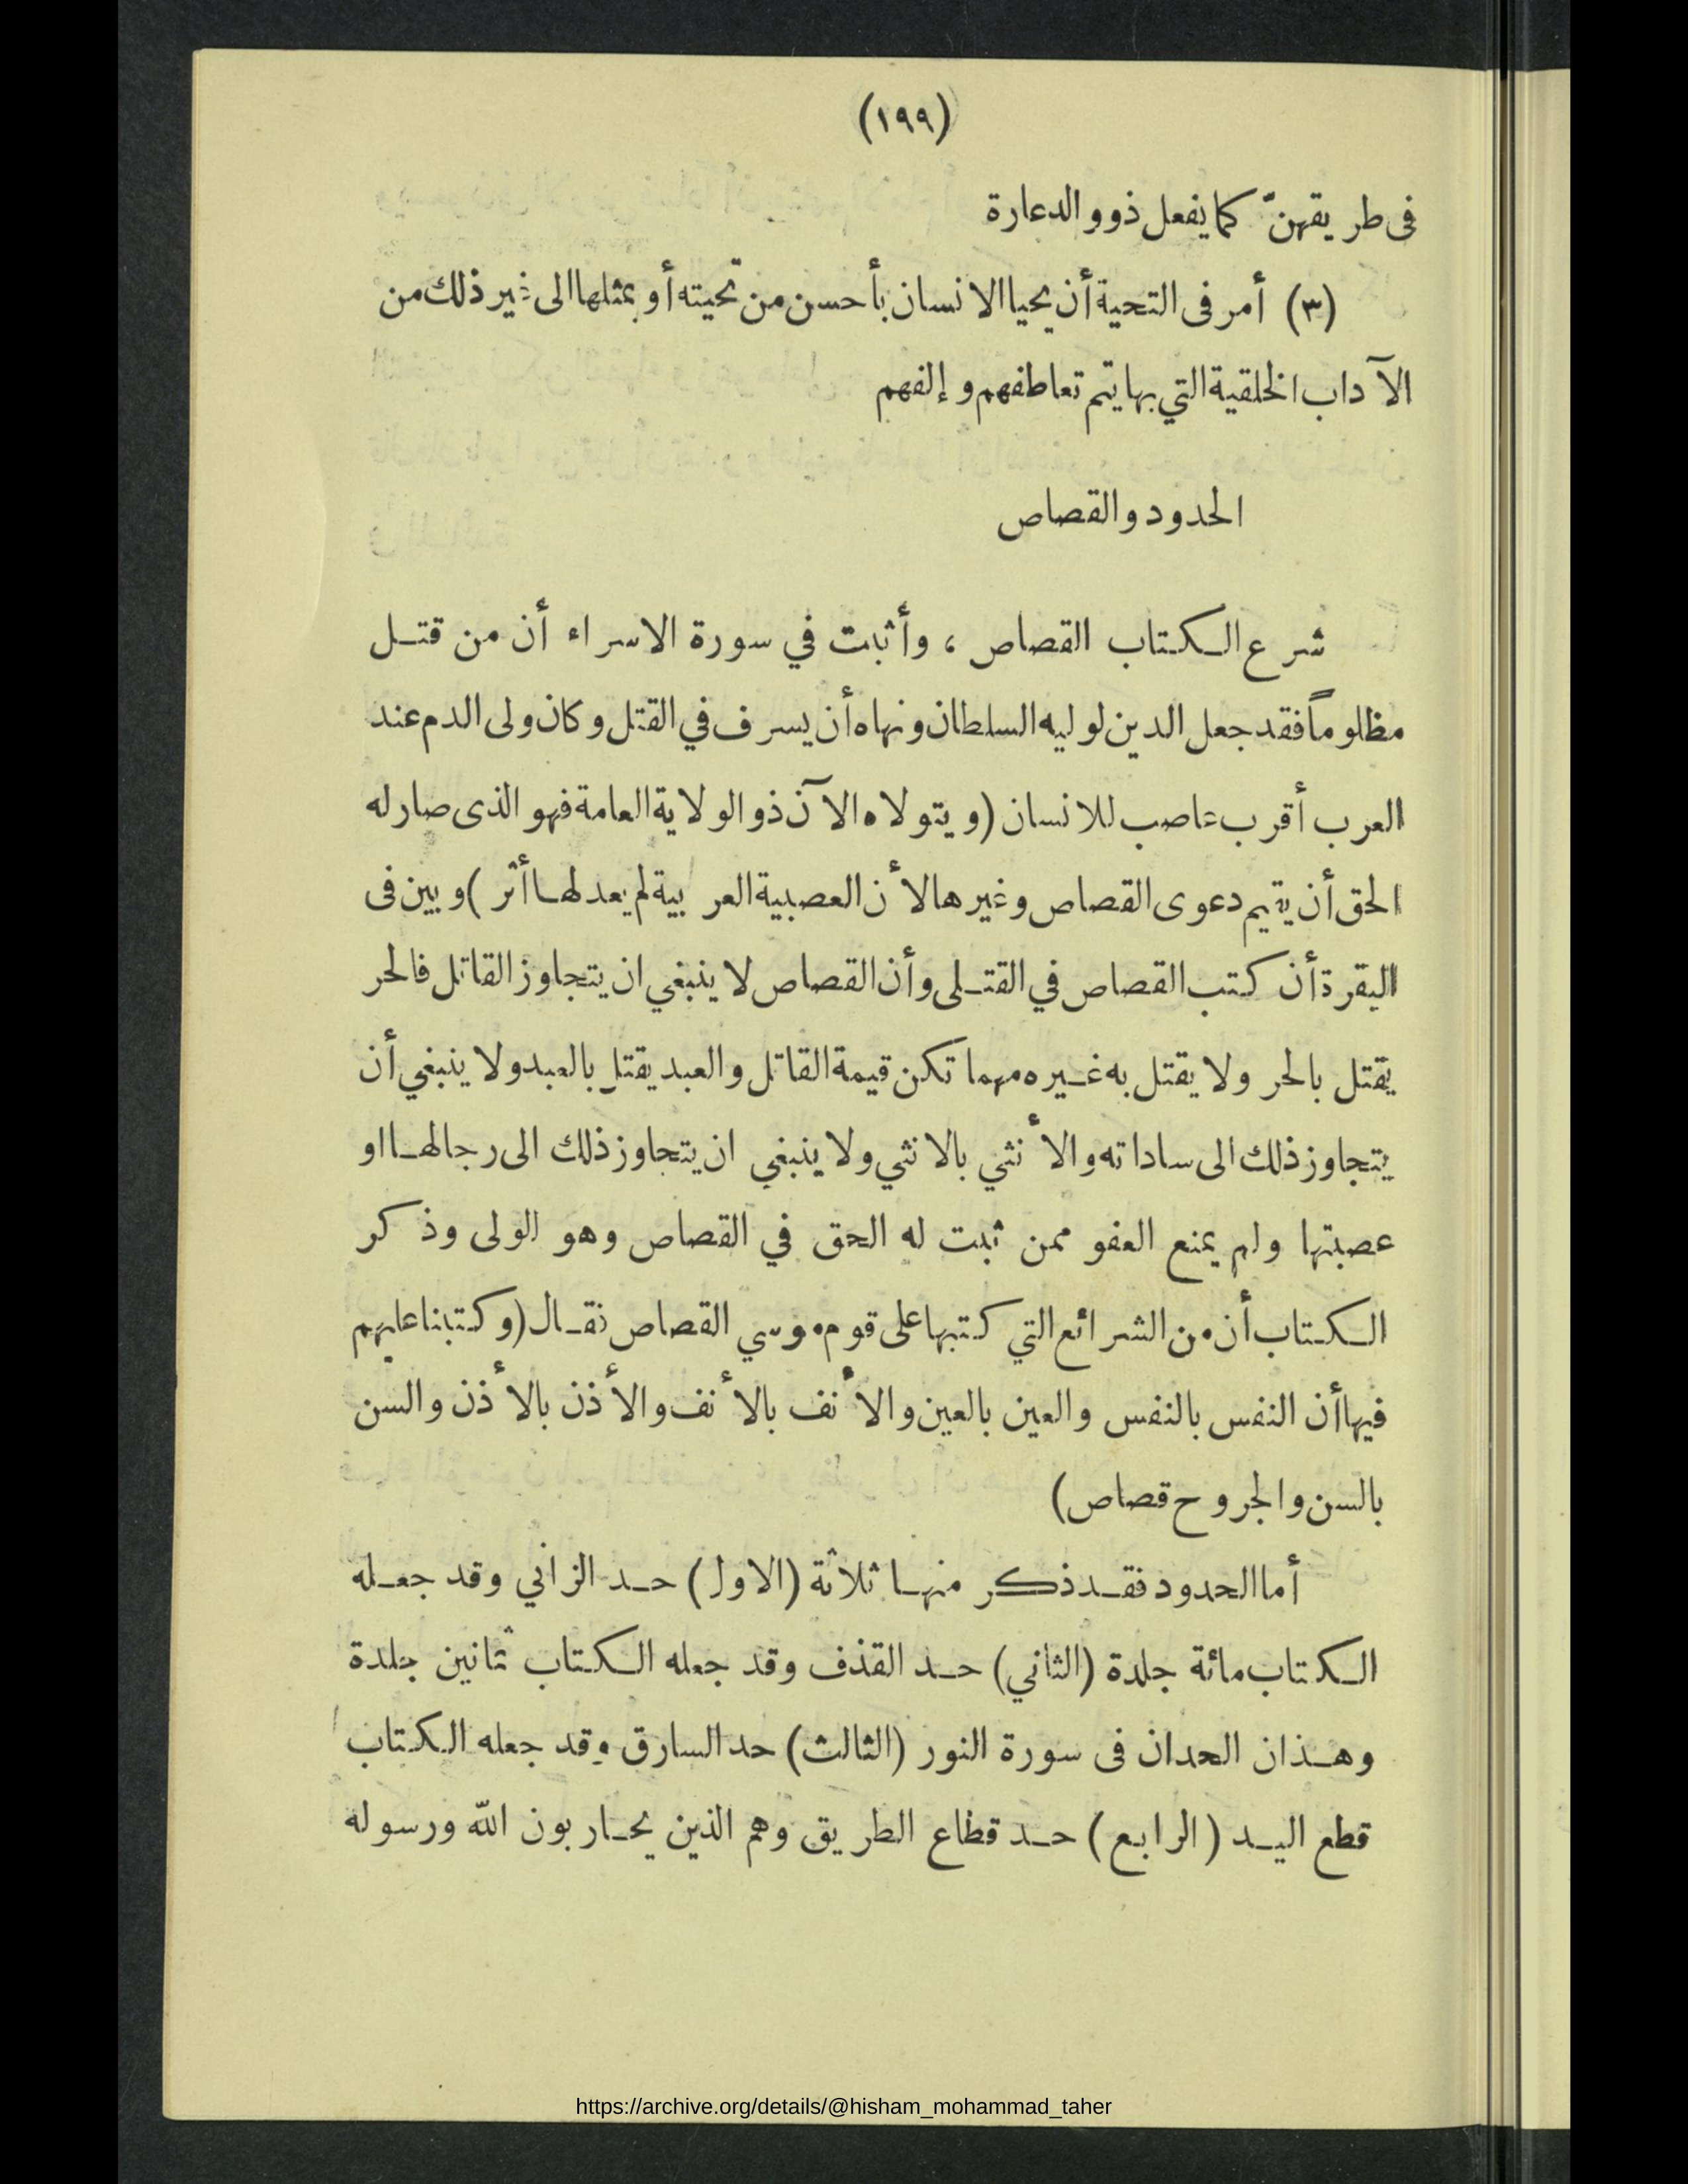 (١٩٩)
فى طريقهنّ كما يفعل ذوو الدعارة
(٣) أمر فى التحية أن يحيا الانسان بأحسن من تحيته أو بمثلها الى غير ذلك من
الآداب الخلقية التي بها يتم تعاطفهم وإلفهم
الحدود والقصاص
شرع الكتاب القصاص ، وأثبت في سورة الاسراء أن من قتل
مظلوماً فقد جعل الدين لوليه السلطان ونهاه أن يسرف في القتل وكان ولى الدم عند
العرب أقرب عاصب للانسان (ويتولاه الآن ذو الولاية العامة فهو الذى صار له
الحق أن يقيم دعوى القصاص وغيرها لأن العصبية العربية لم يعد لها أثر) وبين فى
البقرة أن كتب القصاص في القتلى وأن القصاص لا ينبغي ان يتجاوز القاتل فالحر
يقتل بالحر ولا يقتل به غيره مهما تكن قيمة القاتل والعبد يقتل بالعبد ولا ينبغي أن
يتجاوز ذلك الى ساداته والأنثي بالانثي ولا ينبغي ان يتجاوز ذلك الى رجالها او
عصبتها ولم يمنع العفو ممن ثبت له الحق في القصاص وهو الولى وذكر
الكتاب أن من الشرائع التي كتبها على قوم موسي القصاص فقال (وكتبنا عليهم
فيها أن النفس بالنفس والعين بالعين والأنف بالأنف والأذن بالأذن والسن
بالسن والجروح قصاص)
أما الحدود فقد ذكر منها ثلاثة (الاول) حد الزاني وقد جعله
الكتاب مائة جلدة (الثاني) حد القذف وقد جعله الكتاب ثمانين جلدة
وهذان الحدان فى سورة النور (الثالث) حد السارق وقد جعله الكتاب
قطع اليد (الرابع) حد قطاع الطريق وهم الذين يحاربون الله ورسوله
https://archive.org/details/@hisham_mohammad_taher